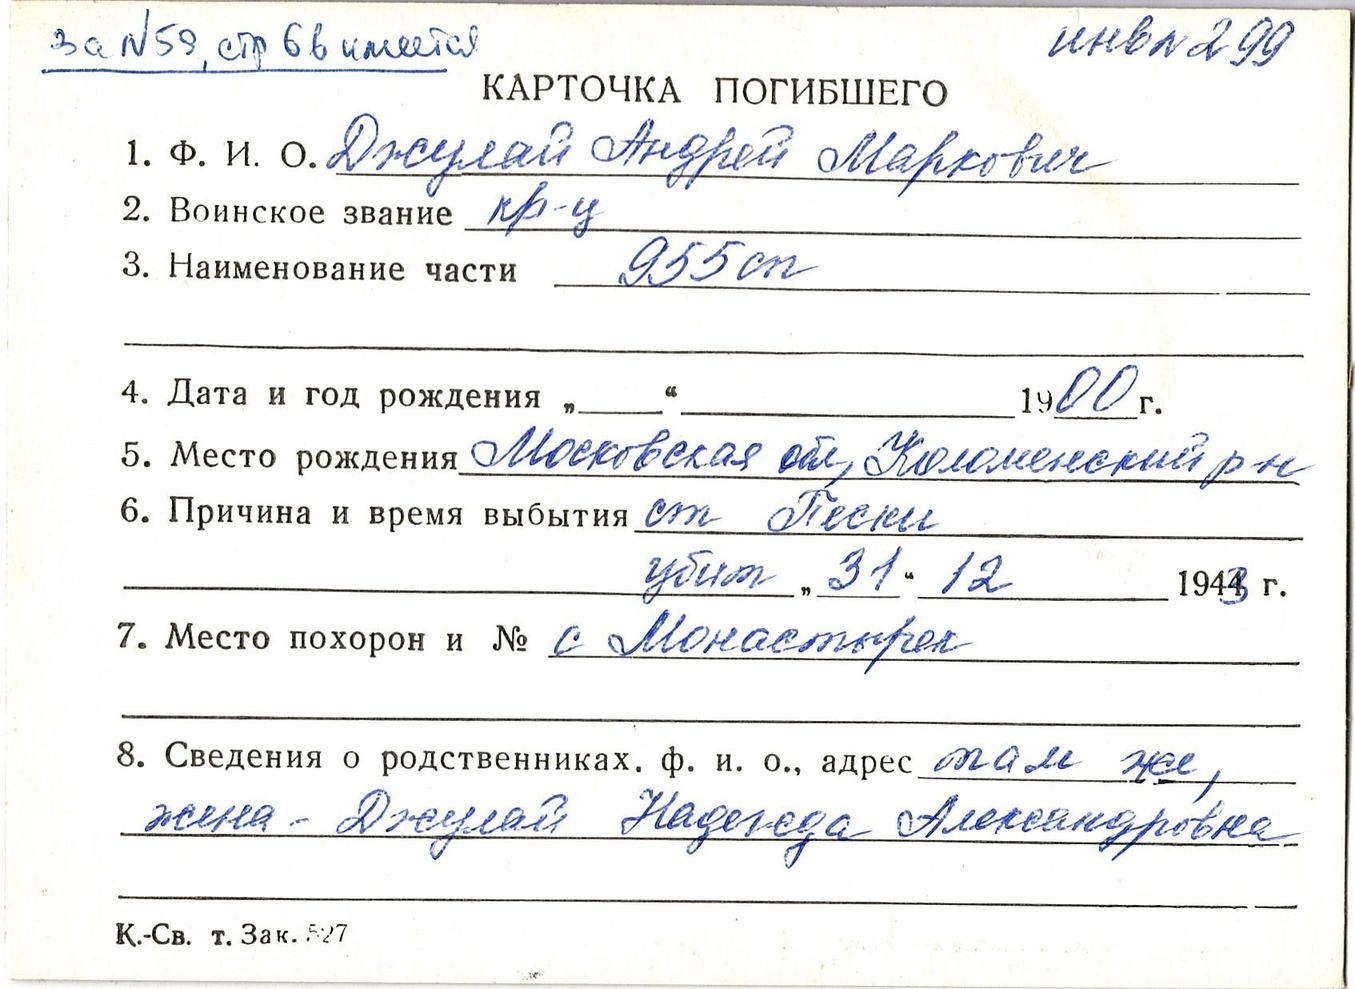 за №59, стр 6 в имеется
инв № 299
КАРТОЧКА ПОГИБШЕГО
1. Ф. И. О. Джулай Андрей Маркович
2. Воинское звание кр-ц
3. Наименование части 955 сп
4. Дата и год рождения „ “ 1900 г.
5. Место рождения Московская обл, Коломенский р-н
6. Причина и время выбытия ст Пески
убит „31“ 12 1943 г.
7. Место похорон и № с Монастырек
8. Сведения о родственниках. ф. и. о., адрес там же,
жена - Джулай Надежда Александровна
К.-Св. т. Зак. 527